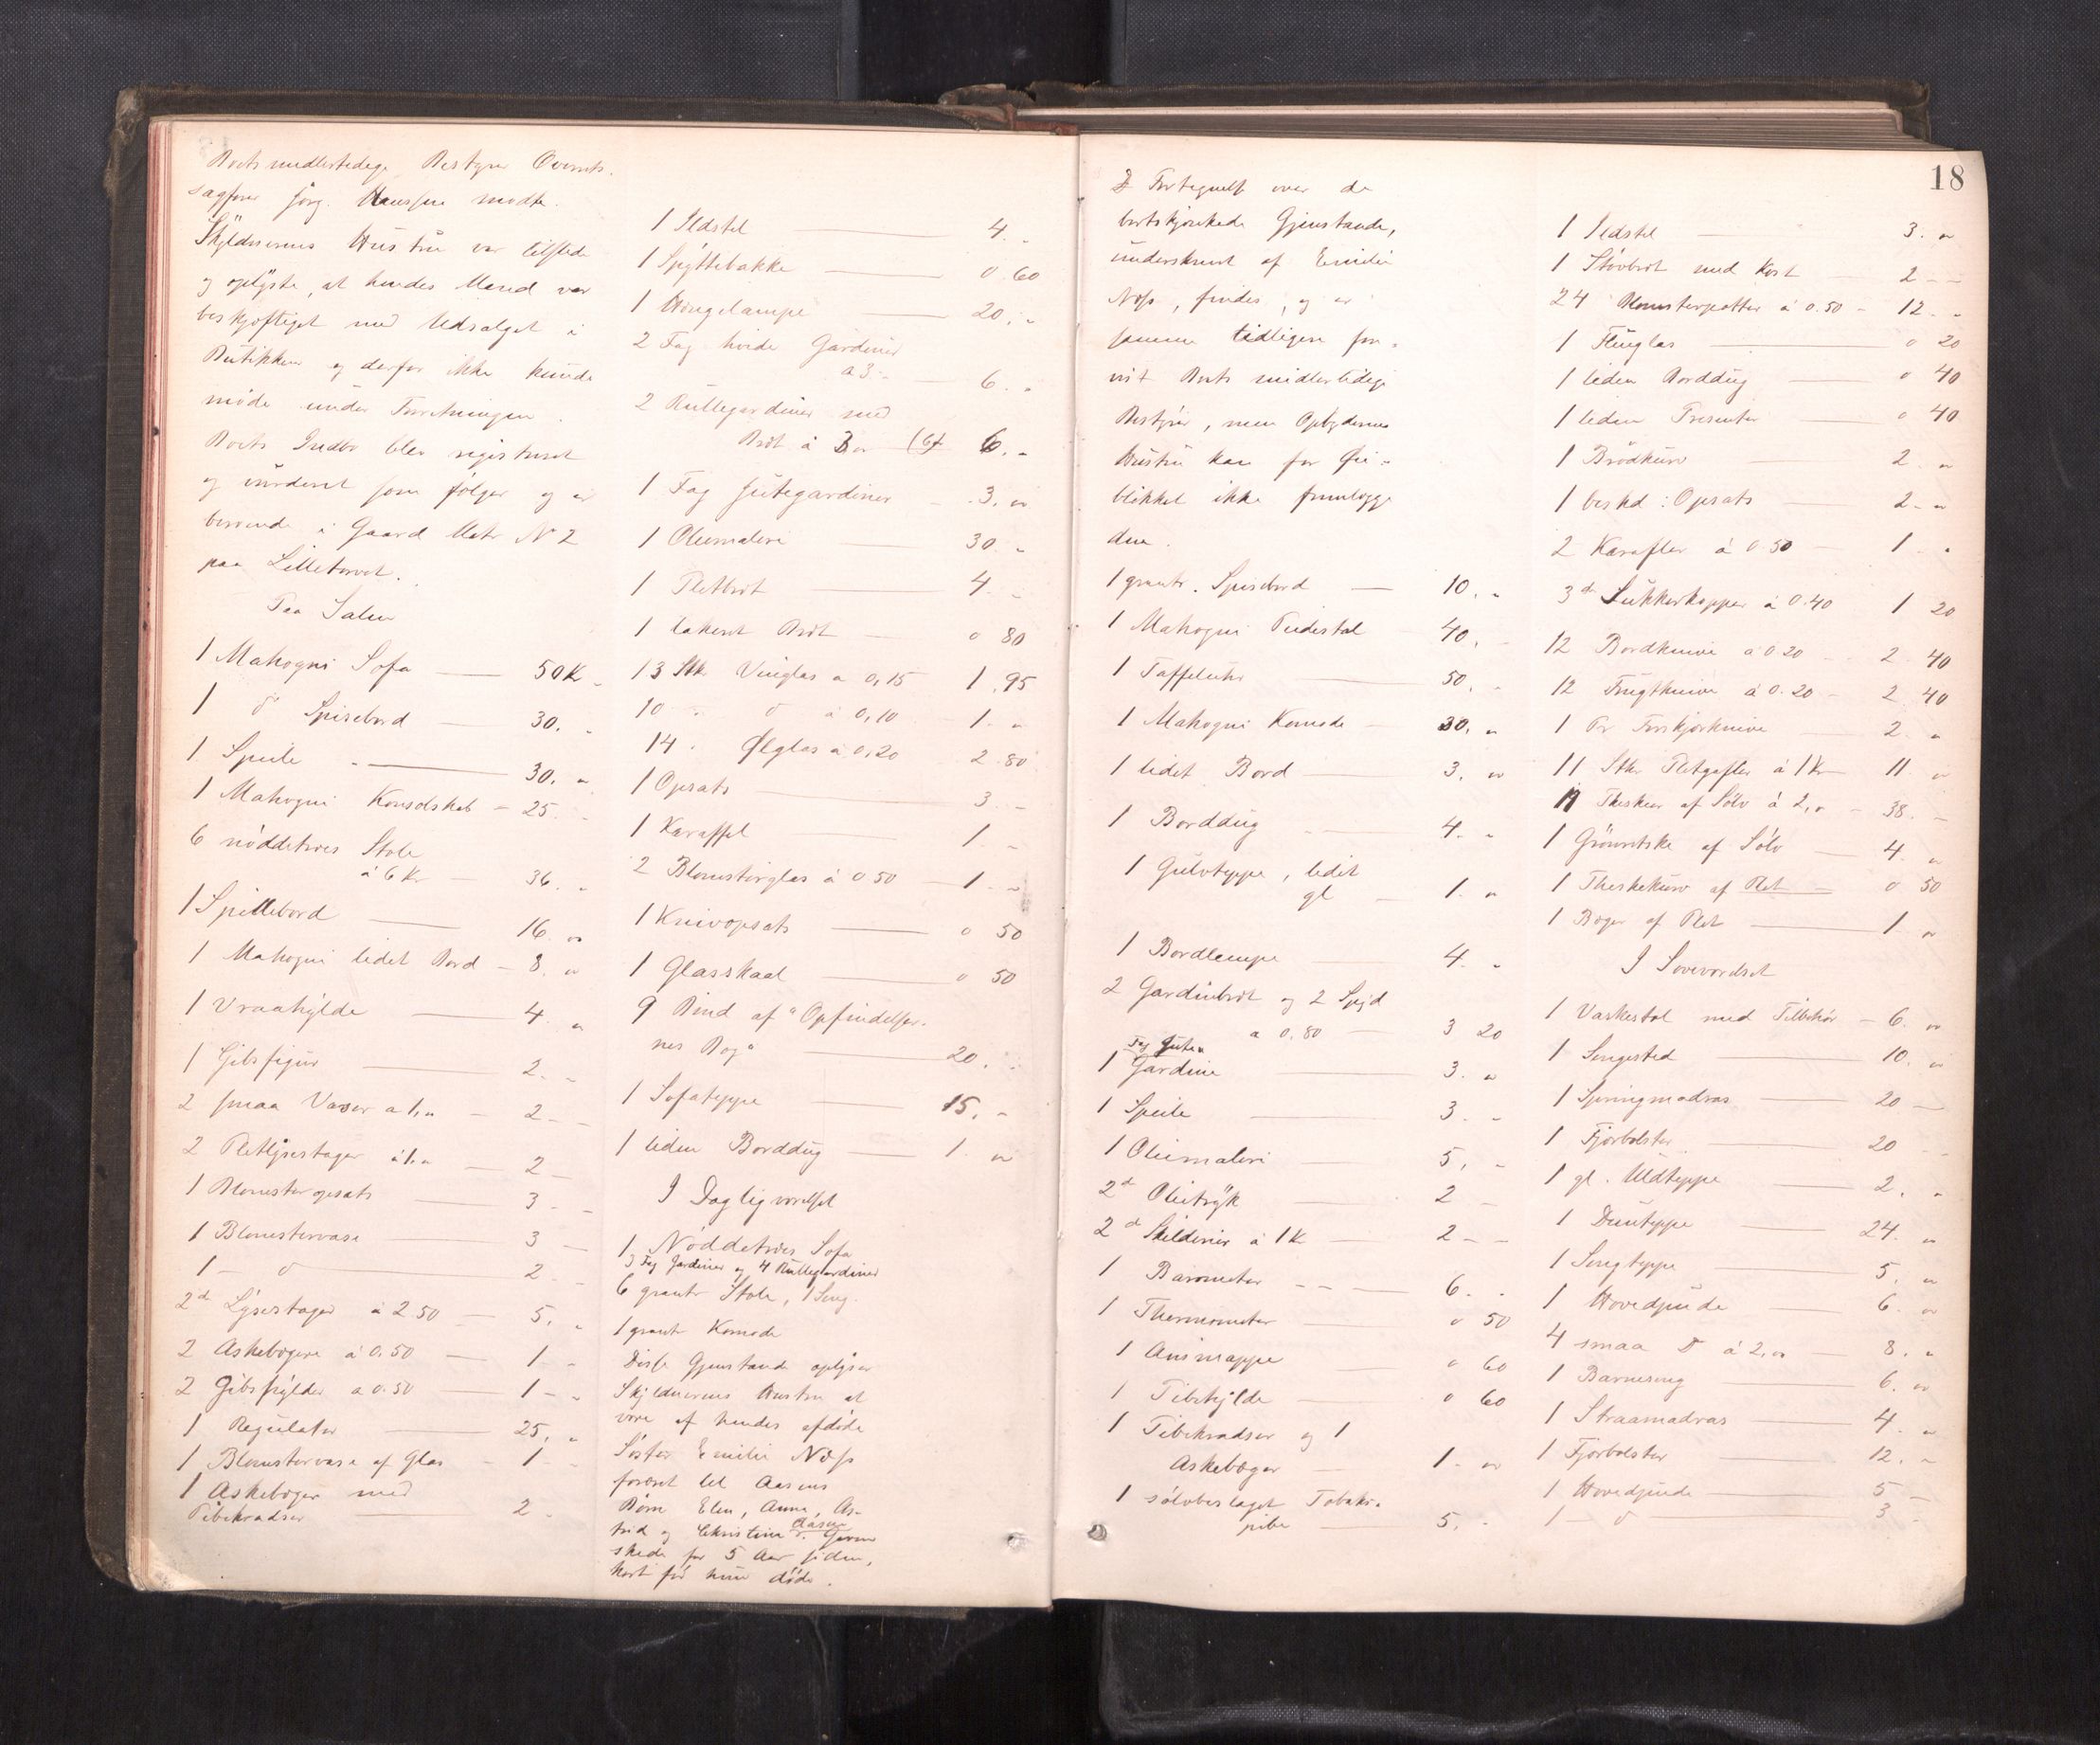 Boets midlertidige Bestyrer Overrets-
sagfører Jørg. Hanssen mødte.
Skyldnerens Hustru var tilstede
og oplyste, at hendes Mand var
beskjæftiget med Udsalget i
Butikken og derfor ikke kunde
møde under Forretningen.
Boets Indbo blev registreret
og vurderet som følger og er
beroende i Gaard Matr N 2
paa Lilletorvet.
Paa Salen
1 Mahogni Sofa — 50 Kr -
1 d° Spisebord — 30. "
1 Speile — 30. "
1 Mahogni Konsolskab - 25. -
6 nøddetræes Stole
à 6 Kr — 36. "
1 Spillebord — 16 "
1 Mahogni lidet Bord - 8. "
1 Vraahylde — 4. "
1 Gibsfigur — 2. -
2 smaa Vaser a 1. " — 2 - -
2 Pletlysestager à 1. " — 2 -
1 Blomsteropsats — 3 - -
1 Blomstervase — 3 —
1 — d° — 2 -
2 d° Lysestager à 2 50 — 5. "
2 Askebægere à 0.50 — 1 - -
2 Gibshylder a 0.50 — 1 - "
1 Regulator — 25. "
1 Blomstervase af Glas - 1 - -
1 Askebæger med
Pibekradser — 2 -
1 Ildstel — 4. "
1 Spyttebakke — 0.60
1 Hængelampe — 20. "
2 Fag hvide Gardiner
a 3 - — 6. "
2 Rullegardiner med
Bræt à 3 " (6) 6. "
1 Fag Jutegardiner - 3. "
1 Oliemaleri — 30. "
1 Pletbræt — 4. -
1 lakeret Bræt — 0 80
13 Stkr Vinglas a 0,15 1.95
10 " d° à 0,10 1 - "
14 " Ølglas à 0,20 2.80
1 Opsats — 3. -
1 Karaffel — 1 -
2 Blomsterglas à 0 50 — 1 - "
1 Knivopsats — 0 50
1 Glasskaal — 0 50
9 Bind af "Opfindelser-
nes Bog" — 20. "
1 Sofateppe — 15. -
1 liden Borddug — 1. "
I Dagligværelset
1 Nøddetræes Sofa
3 Fag Gardiner og 4 Rullegardiner
6 grantr Stole, 1 Seng.
1 grantr Komode
Disse Gjenstande oplyser
Skyldnerens Hustru at
være af hendes afdøde
Søster Emilie Næss
foræret til Aasens
Børn Elen, Anna, As-
trid og Christine Aasen. Gaven
skede for 5 Aar siden,
kort før hun døde.
18
Fortegnelse over de
bortskjænkede Gjenstande,
underskrevet af Emilie
Næss, findes, og er
samme tidligere fore-
vist Boets midlertidige
Bestyrer, men Opbyderens
Hustru kan for Øie-
blikket ikke fremlægge
den.
1 grantr. Spisebord — 10. "
1 Mahogni Piedestal 40. -
1 Taffeluhr — 50. -
1 Mahogni Komode - 30. "
1 lidet Bord — 3. "
1 Borddug — 4. "
1 Gulvteppe, lidet
gl — 1. "
1 Bordlampe — 4. "
2 Gardinbræt og 2 Spyd
a 0.80 — 3 20
Fag Jute-
1 Gardine — 3. "
1 Speile — 3. -
1 Oliemaleri — 5. -
2 d° Olietryk — 2 -
2 d° Skilderier à 1 K — 2 - -
1 Barometer - - 6. "
1 Thermometer — 0 50
1 Avismappe — 0 60
1 Pibehylde — 0 60
1 Pibekradser og 1
Askebæger — 1 - "
1 sølvbeslaget Tobaks-
pibe — 5. -
1 Ildstel — 3. "
1 Støvbræt med Kost — 2 - -
24 Blomsterpotter à 0.50 - 12. "
1 Flueglas — 0 20
1 liden Borddug — 0 40
1 liden Presenter — 0 40
1 Brødkurv — 2. "
1 beskd: Opsats — 2 - "
2 Karafler à 0 50 — 1 "
3 d° Sukkerkopper à 0.40 1 20
12 Bordknive à 0 20 — 2 40
12 Frugtknive à 0.20 — 2 40
1 Pr Forskjærknive — 2 "
11 Stkr Pletgafler à 1 Kr 11 "
19 Theskeer af Sølv à 2. " - 38. -
1 Grønnetske af Sølv — 4. "
1 Theskekurv af Plet — 0 50
1 Bæger af Plet — 1 "
I Soveværelset
1 Vaskestol med Tilbehør - 6. "
1 Sengested — 10. "
1 Springmadras — 20 —
1 Fjærbolster — 20 - -
1 gl. Uldteppe — 2. "
1 Dunteppe — 24. "
1 Sengteppe — 5. "
1 Hovedpude — 6. "
4 smaa D° à 2. " — 8. "
1 Barneseng — 6. "
1 Straamadras — 4. "
1 Fjærbolster — 12. "
1 Hovedpude — 5 -
1 — d° — 3 -